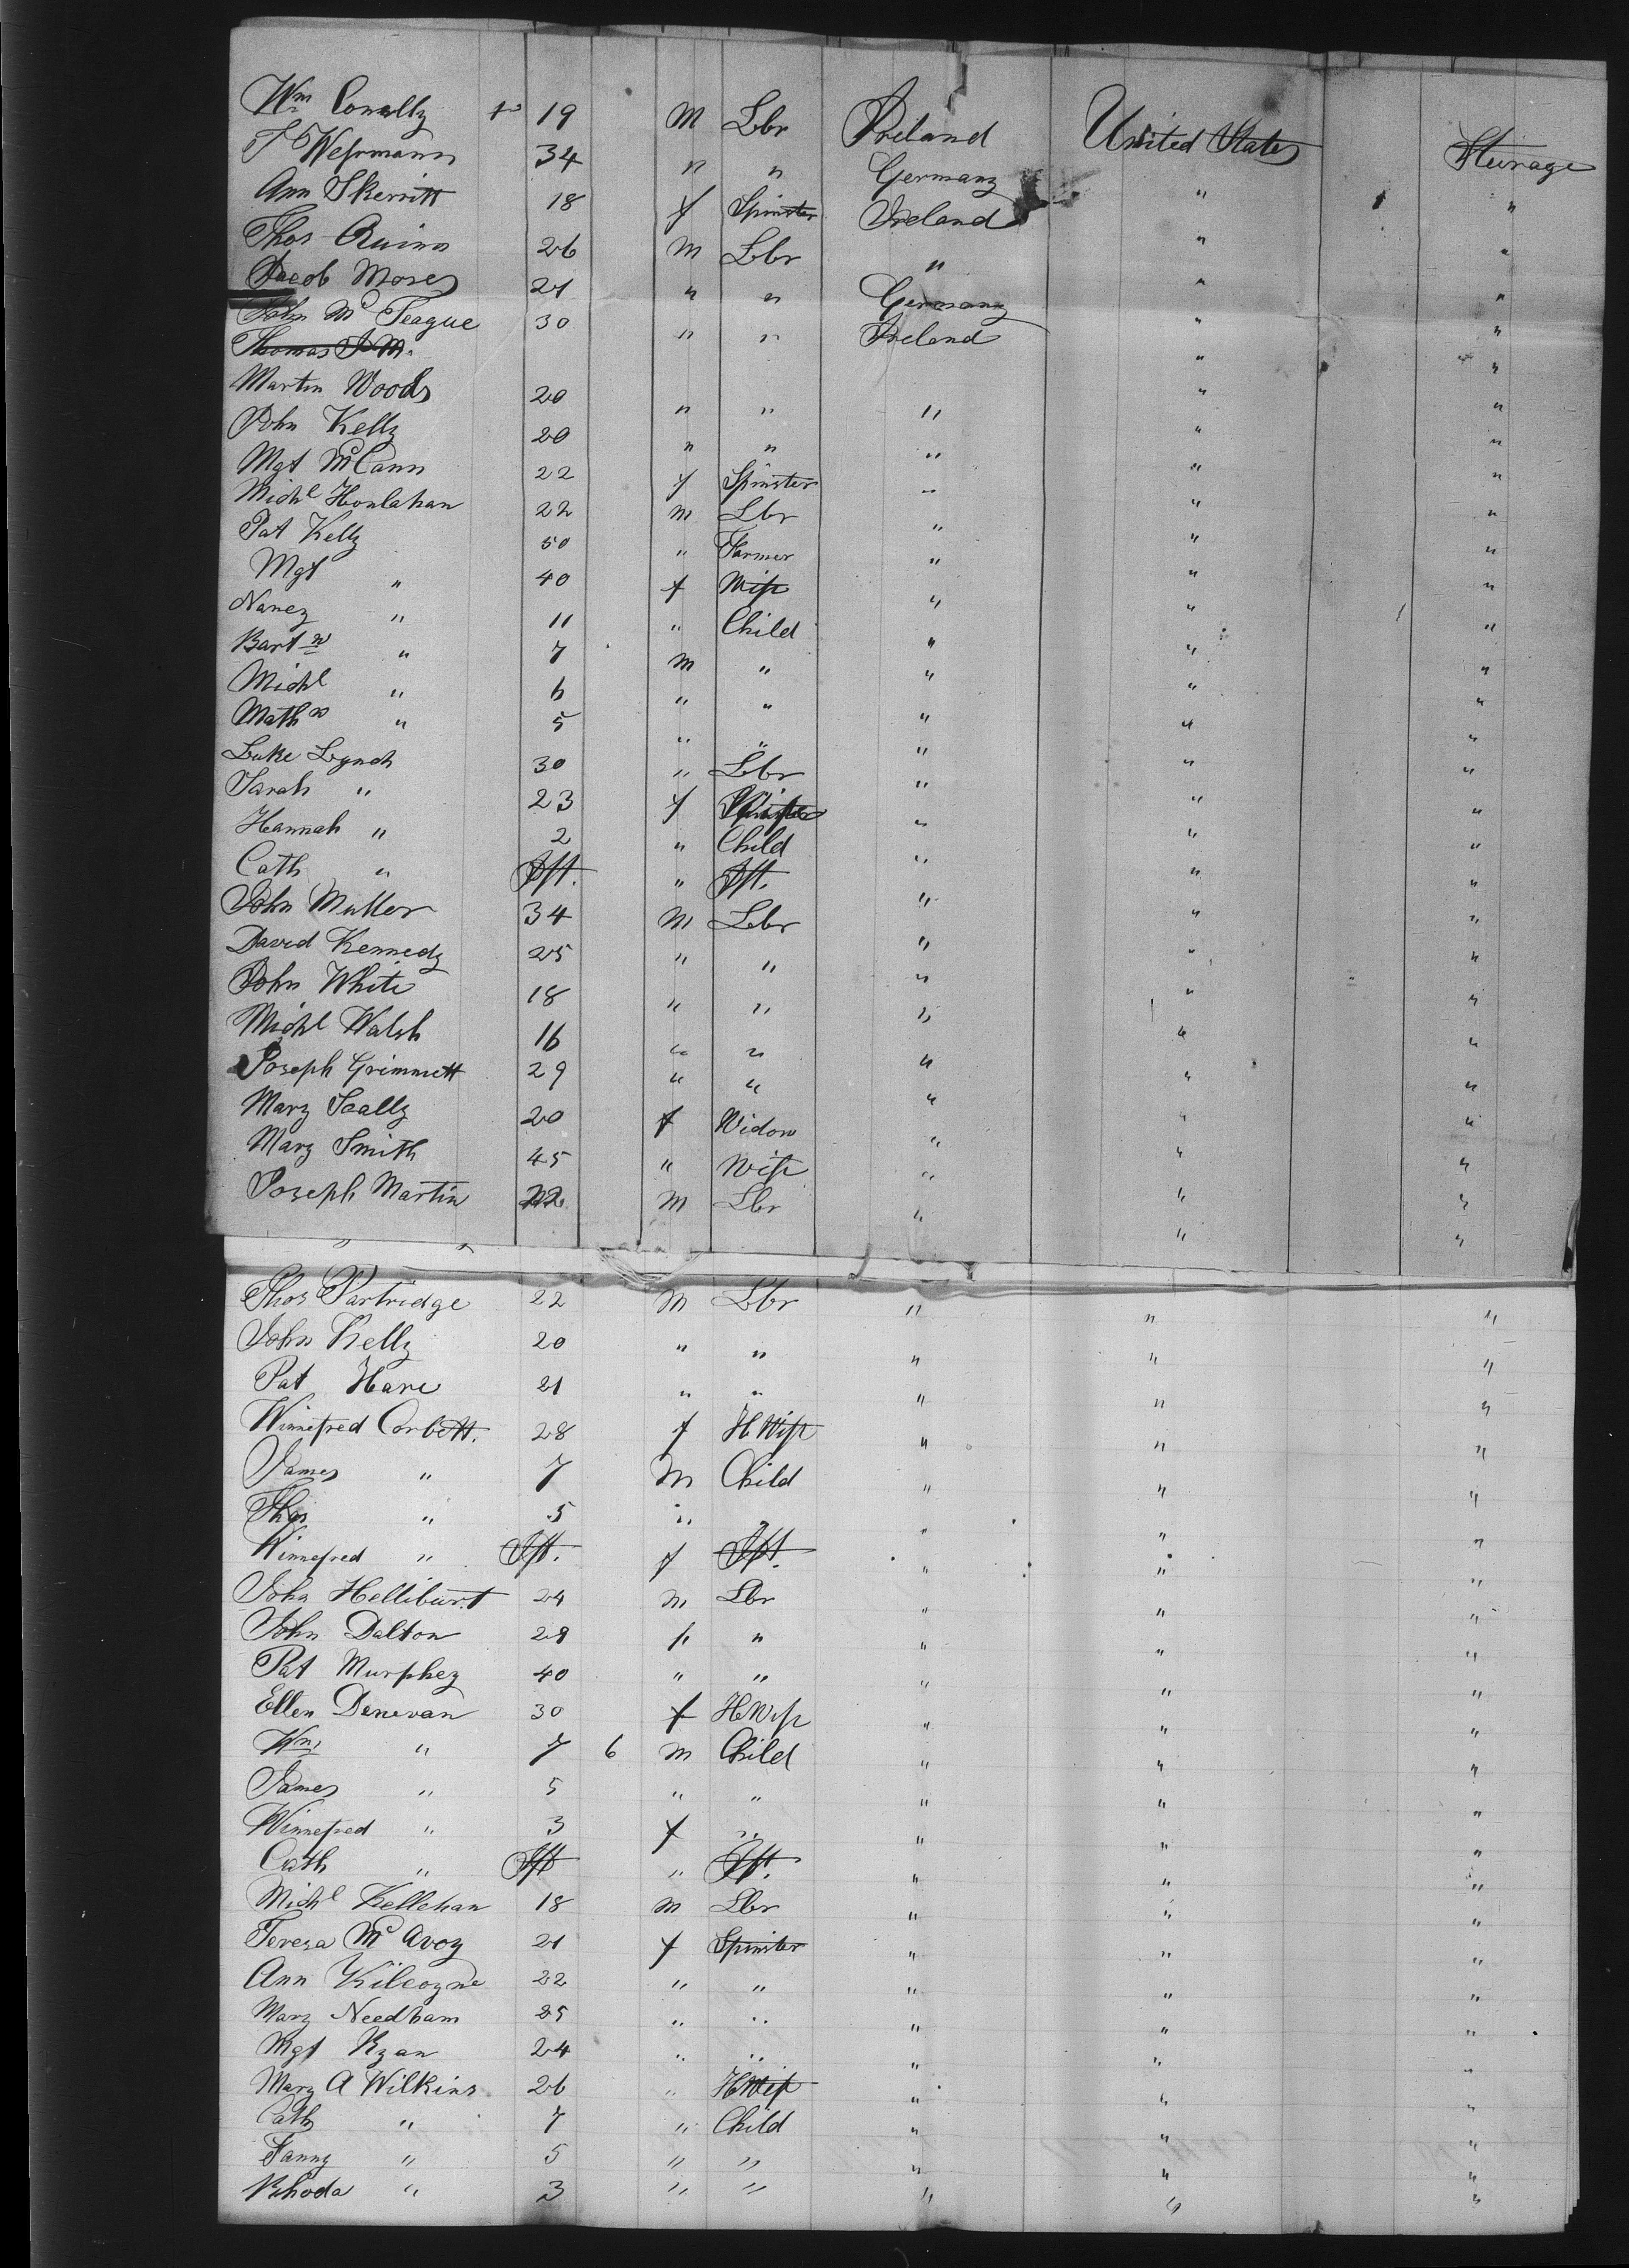 Wm Conolly 19 M Lbr Ireland United States Steerage
Wehrmann 34 " " Germany " "
Ann Skerritt 18 f Spinster Ireland " "
Thos Quinn 26 M Lbr " " "
Jacob Moses 21 " " Germany " "
John McTeague 30 " " Ireland " "
Thomas J M.
Martin Woods 20 " " " " "
John Kelly 20 " " " " "
Mgt McCann 22 f Spinster " " "
Michl Houlahan 22 m Lbr " " "
Pat Kelly 50 " Farmer " " "
Mgt " 40 f Wife " " "
Nancy " 11 " Child " " "
Bartw " 7 m " " " "
Michl " 6 " " " " "
Mathw " 5 " " " " "
Luke Lynch 30 " Lbr " " "
Sarah " 23 f Wife " " "
Hannah " 2 " Child " " "
Cath " Ift. " Ift. " " "
John Muller 34 M Lbr " " "
David Kennedy 25 " " " " "
John White 18 " " " " "
Michl Walsh 16 " " " " "
Joseph Grimmett 29 " " " " "
Mary Scally 20 f Widow " " "
Mary Smith 45 " Wife " " "
Joseph Martin 22 M Lbr " " "
Thos Partridge 22 M Lbr " " "
John Kelly 20 " " " " "
Pat Hare 21 " " " " "
Winnefred Corbett. 28 f H Wife " " "
James " 7 M Child " " "
Thos " 5 " " " " "
Winnefred " Ift. f Ift. " " "
John Helliburt 24 m Lbr " " "
John Dalton 29 " " " " "
Pat Murphey 40 " " " " "
Ellen Denevan 30 f H Wife " " "
Wm " 7 6 m Child " " "
James " 5 " " " " "
Winnefred " 3 f " " " "
Cath " Ift " Ift. " " "
Michl Kellehan 18 m Lbr " " "
Teresa McAvoy 21 f Spinster " " "
Ann Kilcoyne 22 " " " " "
Mary Needham 25 " " " " "
Mgt Ryan 24 " " " " "
Mary A Wilkins 26 " H Wife " " "
Cath " 7 " Child " " "
Fanny " 5 " " " " "
Rhoda " 3 " " " " "